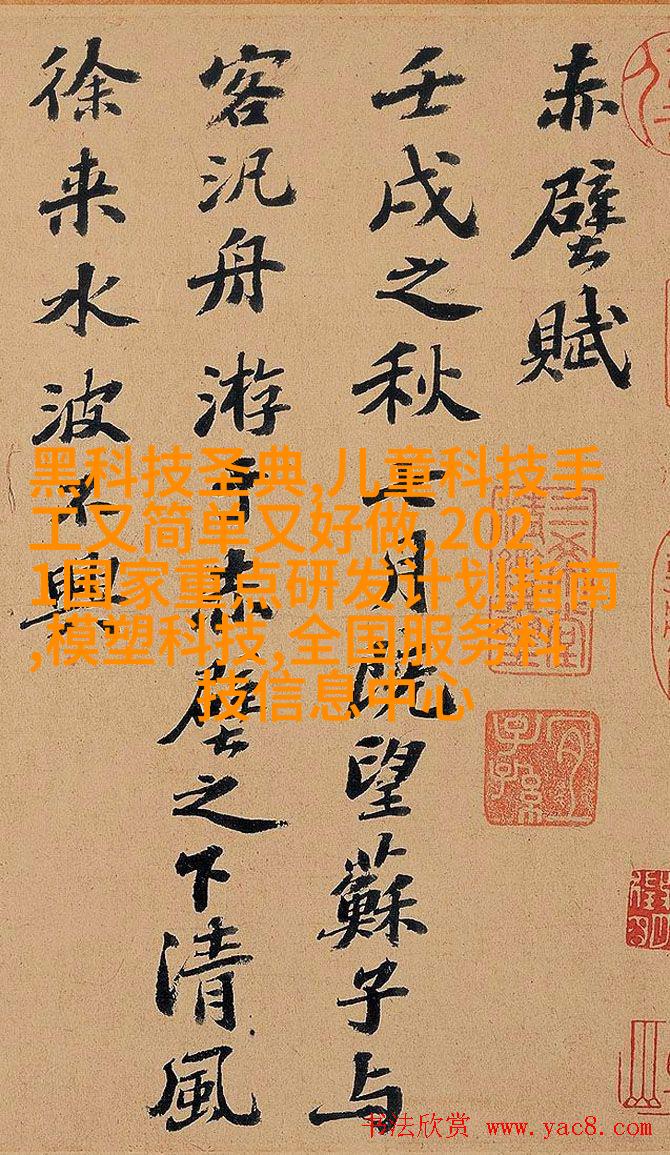 赤壁賦
壬戌之秋七月既望蘇子与
客汎舟游于赤壁之下清風
徐来水波不興
黑科技圣典,儿童科技手
工又简单又好做,202
1国家重点研发计划指南
,模塑科技,全国服务科
技信息中心
书法欣赏 www.yac8.com